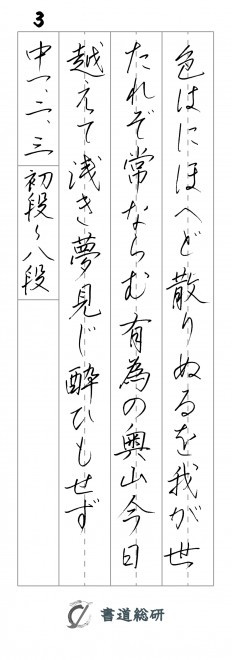 3
色はにほへど散りぬるを我が世
たれぞ常ならむ有為の奥山今日
越えて浅き夢見じ酔ひもせず
中一、二、三 初段〜八段
書道総研